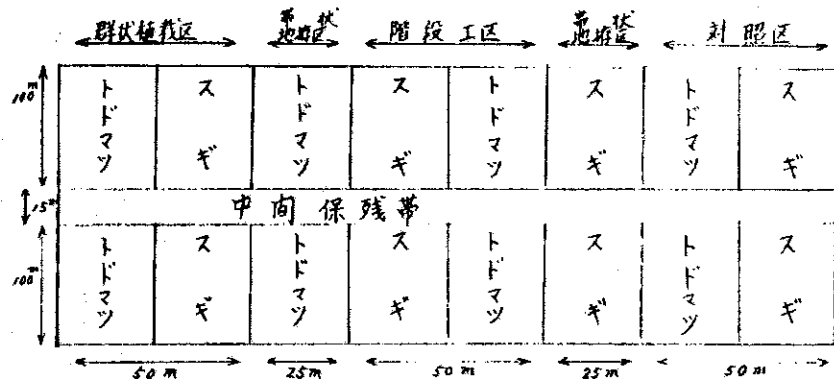 群状植栽区 帯状地拵区 階段工区 帯状地拵区 対照区
100m
トドマツ スギ トドマツ スギ トドマツ スギ トドマツ スギ
15m
中間保残帯
100m
トドマツ スギ トドマツ スギ トドマツ スギ トドマツ スギ
50m 25m 50m 25m 50m